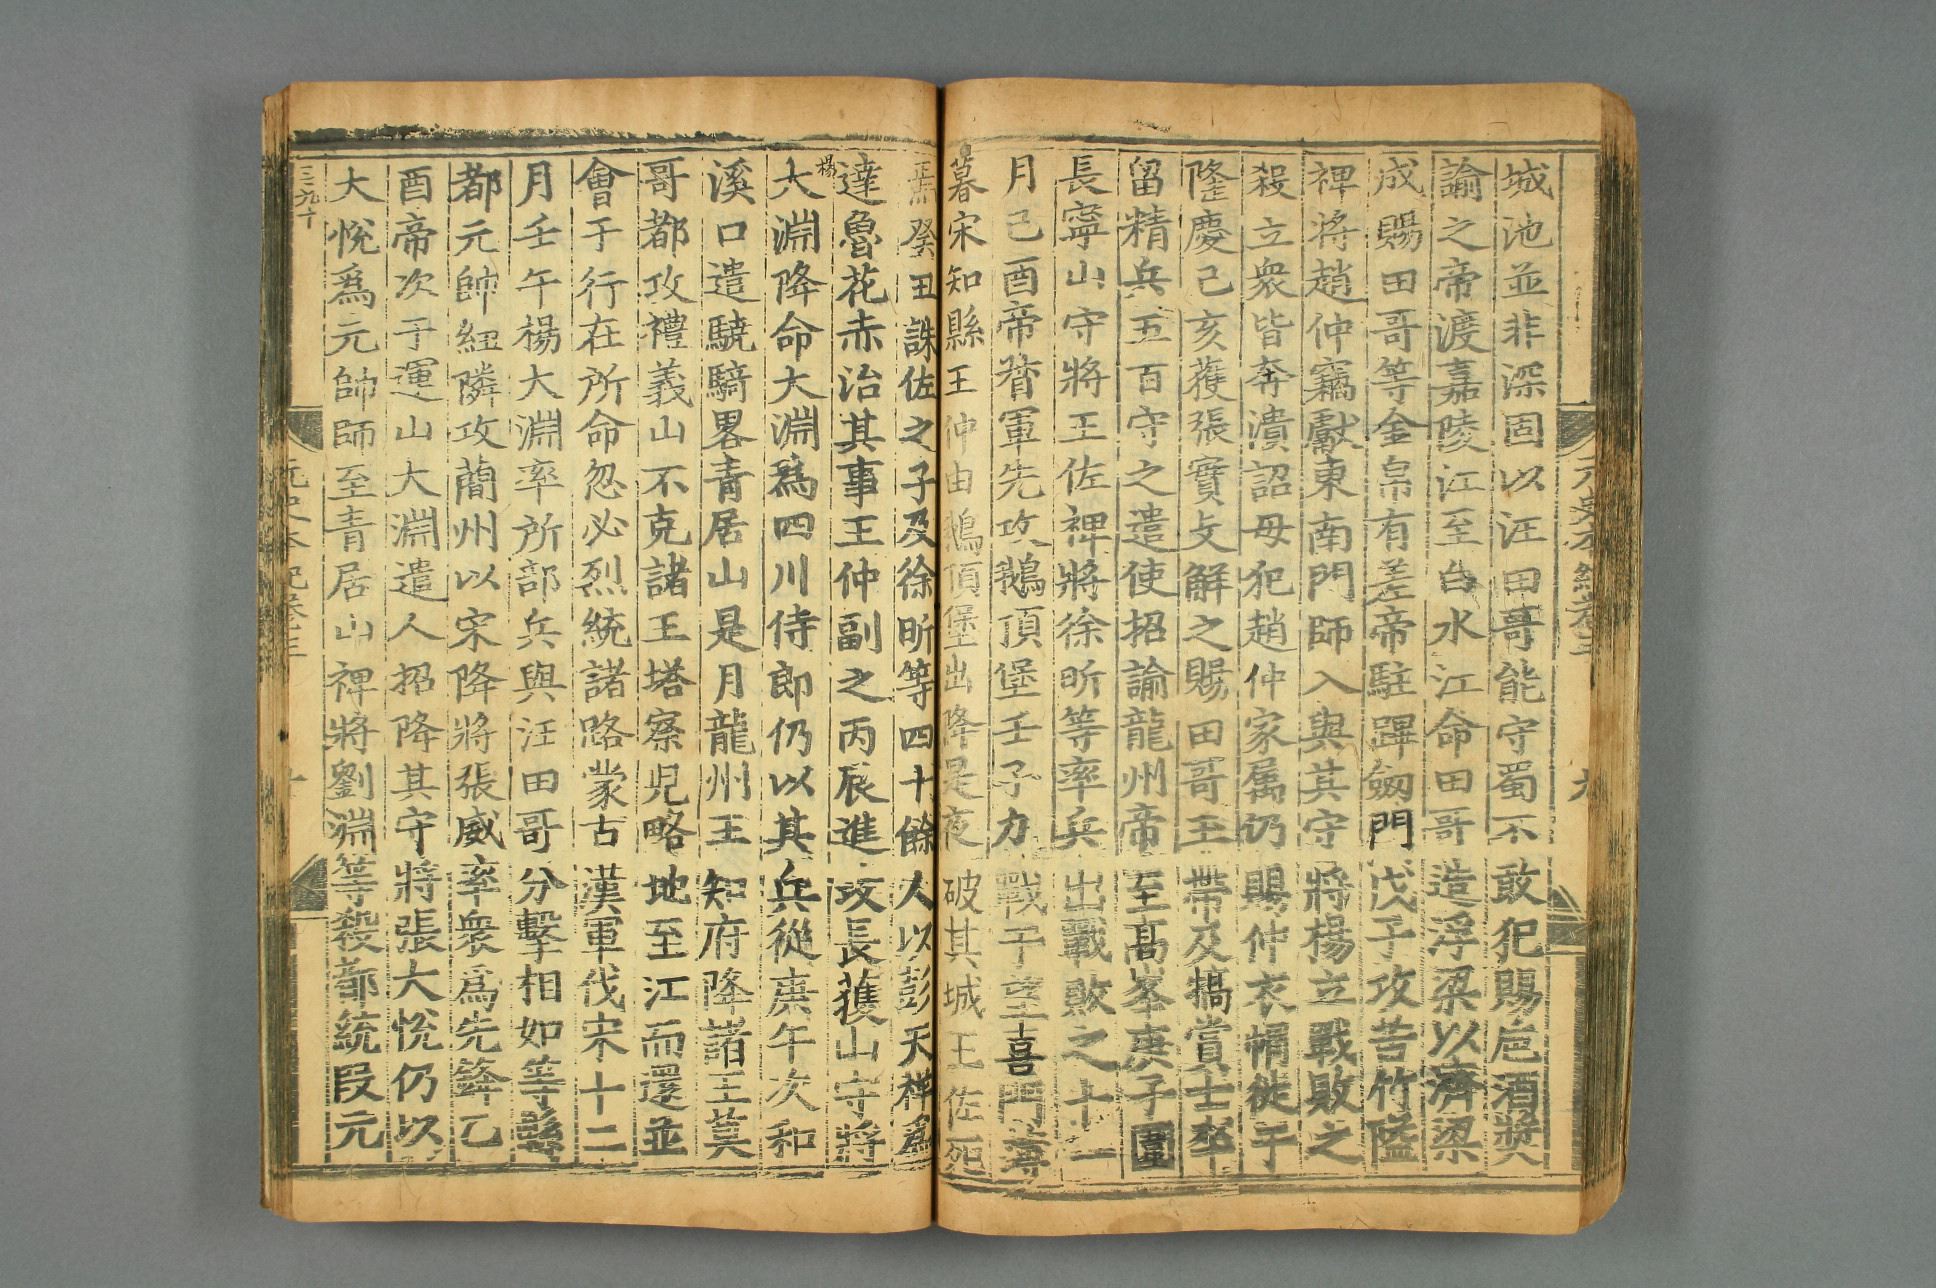 城池並非深固以汪田哥能守蜀不敢犯賜巵酒奬
諭之帝渡嘉陵江至白水江命田哥造浮梁以濟梁
成賜田哥等金帛有差帝駐蹕劒門戊子攻苦竹隘
禆將趙仲竊獻東南門師入與其守將楊立戰敗之
殺立衆皆奔潰詔母犯趙仲家属仍賜仲衣帽徙于
隆慶己亥獲張實支解之賜田哥玉帶及犒賞士卒
留精兵五百守之遣使招諭龍州帝至高峯庚子圍
長寧山守將王佐禆將徐昕等率兵出戰敗之十一
月己酉帝督軍先攻鵝頂堡壬子力戰于望喜門薄
暮宋知縣王仲由鵝頂堡出降是夜破其城王佐死
焉癸丑誅佐之子及徐昕等四十餘人以彭天祥爲
達魯花赤治其事王仲副之丙辰進攻長獲山守將
楊
大淵降命大淵爲四川侍郎仍以其兵從庚午次和
溪口遣驍騎畧青居山是月龍州王知府降諸王莫
哥都攻禮義山不克諸王塔察兒略地至江而還並
會于行在所命忽必烈統諸路蒙古漢軍伐宋十二
月壬午楊大淵率所部兵與汪田哥分擊相如等縣
都元帥紐隣攻蕳州以宋降將張威率衆爲先鋒乙
酉帝次于運山大淵遣人招降其守將張大悅仍以
大悅爲元帥師至青居山禆將劉淵等殺都統叚元
元史本紀卷三